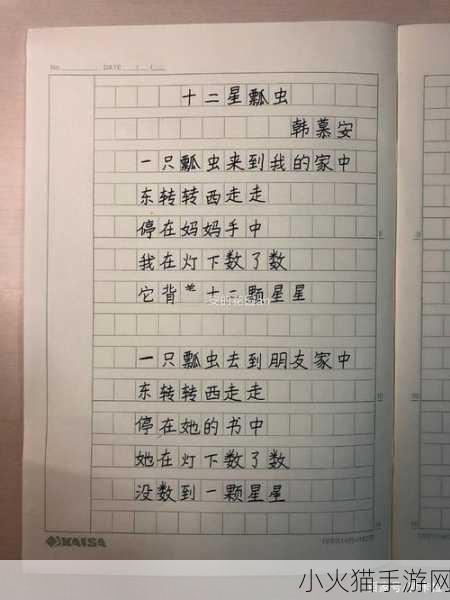 No.
DATE / /
十二星瓢虫
韩慕安
一只瓢虫来到我的家中
东转转西走走
停在妈妈手中
我在灯下数了数
它背着十二颗星星
一只瓢虫去到朋友家中
东转转西走走
停在她的书中
她在灯下数了数
没数到一颗星星
KAISA
小火猫手游网